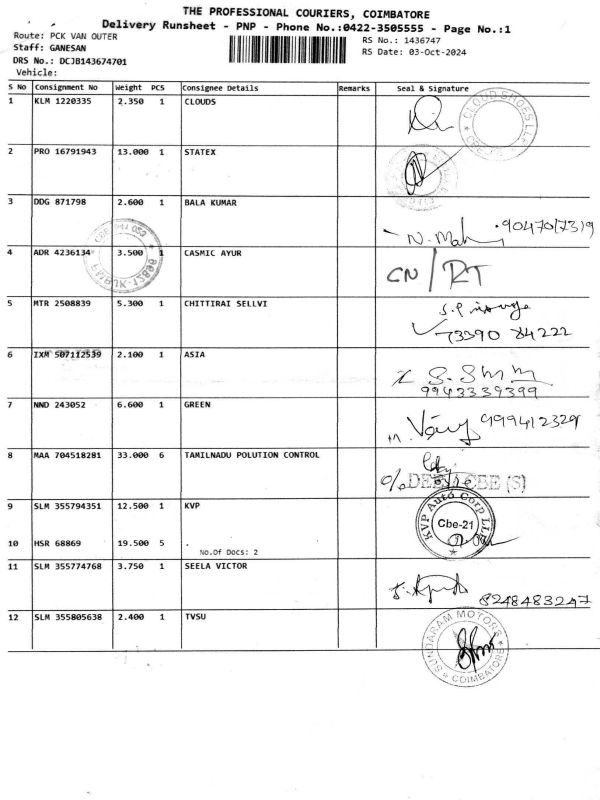 THE PROFESSIONAL COURIERS, COIMBATORE
Delivery Runsheet - PNP - Phone No.:0422-3505555 - Page No.:1
Route: PCK VAN OUTER
RS No.: 1436747
Staff: GANESAN
RS Date: 03-Oct-2024
DRS No.: DCJB143674701
Vehicle:
S No Consignment No Weight PCS Consignee Details Remarks Seal & Signature
1 KLM 1220335 2.350 1 CLOUDS
CLOUD SHOES LLP
2 PRO 16791943 13.000 1 STATEX
3 DDG 871798 2.600 1 BALA KUMAR
4 ADR 4236134 3.500 1 CASMIC AYUR
CN/RT
5 MTR 2508839 5.300 1 CHITTIRAI SELLVI
73390 84222
6 IXM 507112539 2.100 1 ASIA
9943339399
7 NND 243052 6.600 1 GREEN
999412329
8 MAA 704518281 33.000 6 TAMILNADU POLUTION CONTROL
CBE (S)
9 SLM 355794351 12.500 1 KVP
KVP Auto Corp LLP
Cbe-21
10 HSR 68869 19.500 5 .
No.Of Docs: 2
11 SLM 355774768 3.750 1 SEELA VICTOR
8248483247
12 SLM 355805638 2.400 1 TVSU
SUNDARAM MOTORS
COIMBATORE